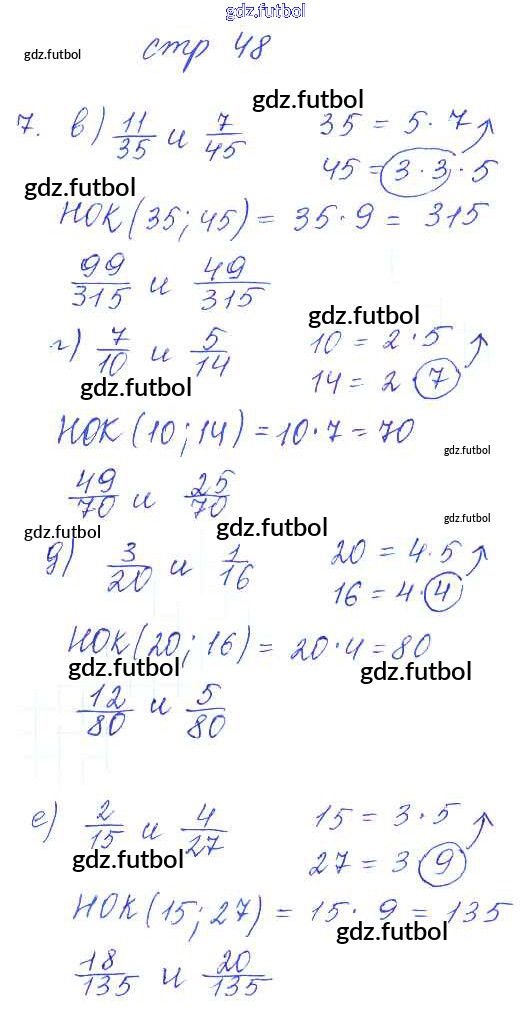 gdz.futbol
gdz.futbol
стр 48
gdz.futbol
7. в) 11/35 и 7/45 35 = 5 · 7
45 = 3 · 3 · 5
gdz.futbol
НОК (35; 45) = 35 · 9 = 315
99/315 и 49/315
gdz.futbol
г) 7/10 и 5/14 10 = 2 · 5
14 = 2 · 7
gdz.futbol
НОК (10; 14) = 10 · 7 = 70
gdz.futbol
49/70 и 25/70
gdz.futbol
gdz.futbol gdz.futbol
д) 3/20 и 1/16 20 = 4 · 5
16 = 4 · 4
НОК (20; 16) = 20 · 4 = 80
gdz.futbol gdz.futbol
12/80 и 5/80
е) 2/15 и 4/27 15 = 3 · 5
27 = 3 9
gdz.futbol
НОК (15; 27) = 15 · 9 = 135
gdz.futbol
18/135 и 20/135